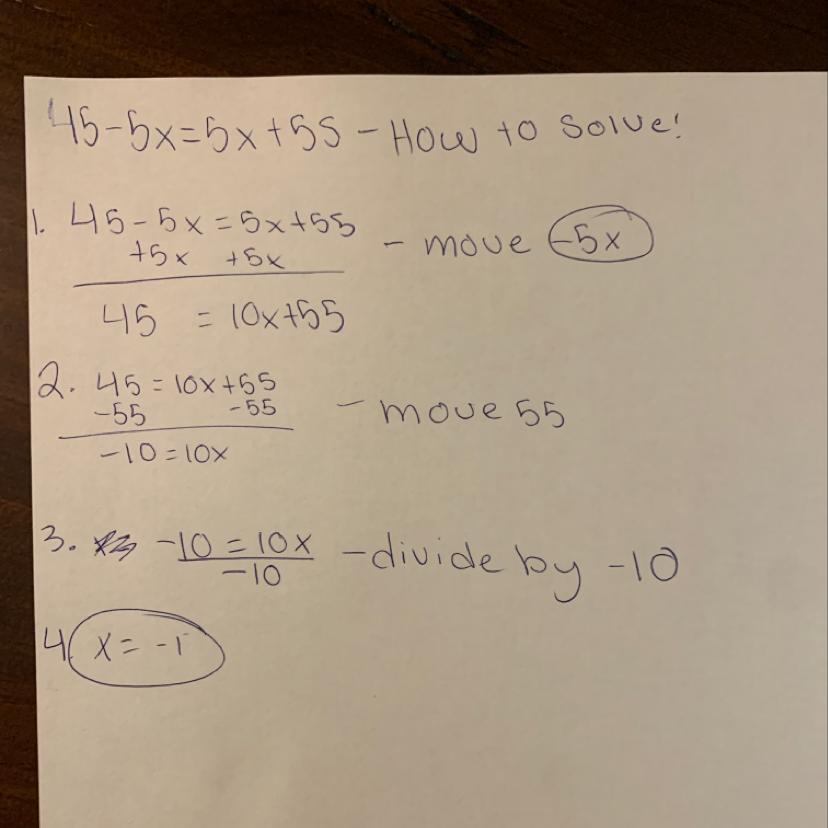 45-5x=5x+55 - How to solve!
1. 45-5x=5x+55 - move -5x
+5x +5x
45 = 10x+55
2. 45=10x+55
-55 -55 - move 55
-10=10x
3. -10=10x - divide by -10
-10
4. x=-1